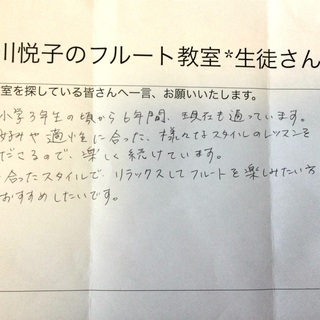 川悦子のフルート教室*生徒さん
室を探している皆さんへ一言、お願いいたします。
小学3年生の頃から6年間、現在も通っています。
好みや適性に合った、様々なスタイルのレッスンを
ださるので、楽しく続けています。
合ったスタイルで、リラックスしてフルートを楽しみたい方
おすすめしたいです。